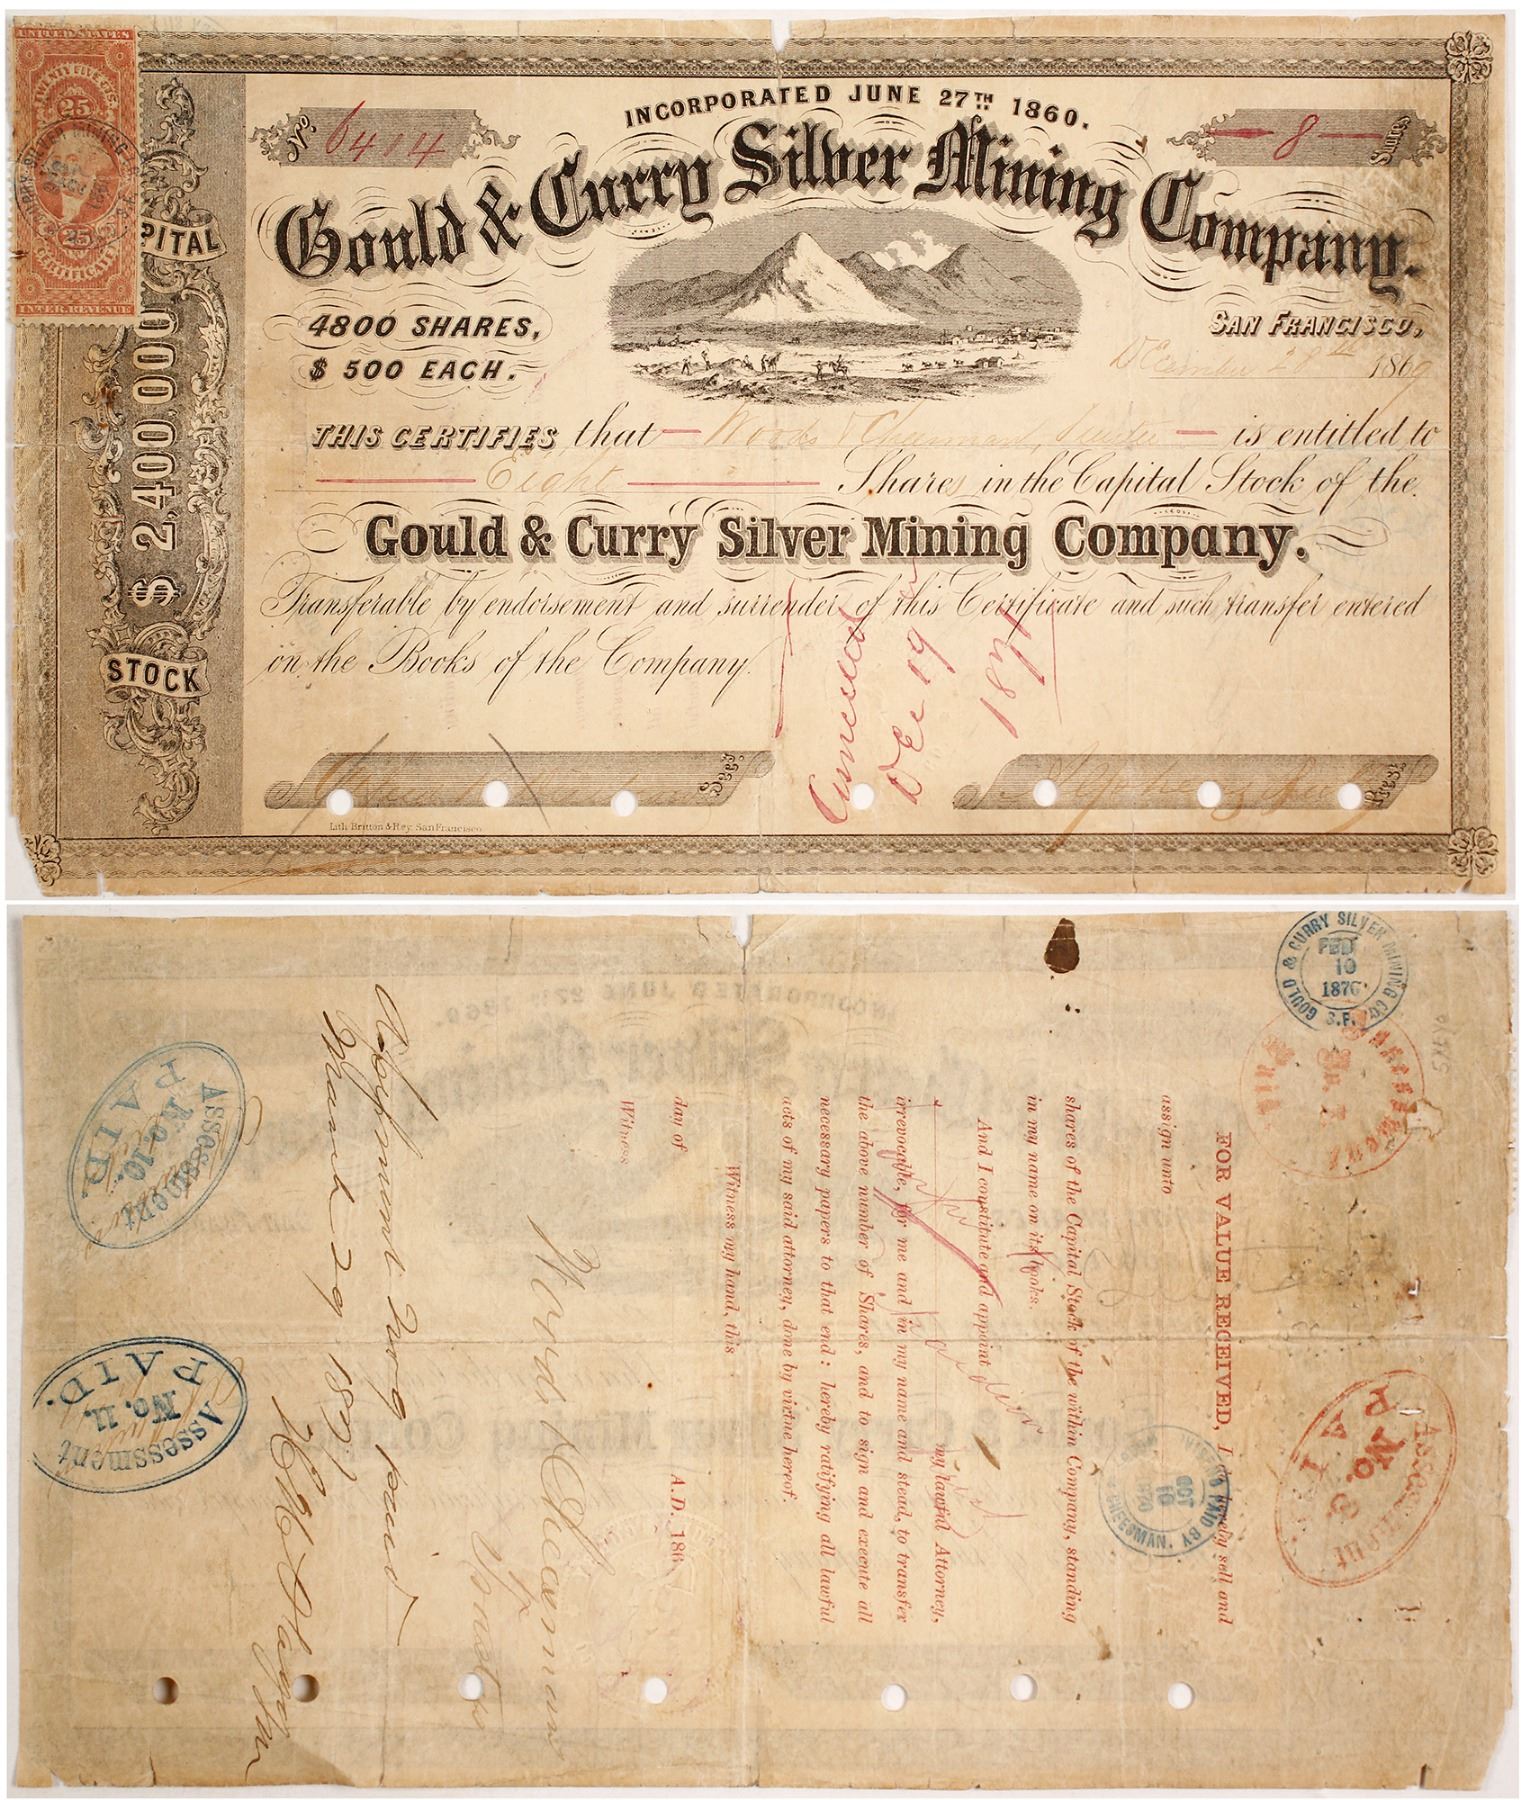 UNITED STATES
TWENTY FIVE CTS.
25
25
CERTIFICATE
INTER. REVENUE
CAPITAL
$ 2,400,000
STOCK
INCORPORATED JUNE 27TH 1860.
No. 6414
8 Shares
Gould & Curry Silver Mining Company.
4800 SHARES,
$ 500 EACH.
SAN FRANCISCO,
December 28th 1869
THIS CERTIFIES that Woods & Cheesman, Trustee is entitled to
Eight Shares in the Capital Stock of the
Gould & Curry Silver Mining Company.
Transferable by endorsement and surrender of this Certificate and such transfer entered
on the Books of the Company.
Cancelled
Dec 19
1871
Secy.
Prest.
Lith. Britton & Rey. San Francisco
GOULD & CURRY SILVER MINING CO. S.F.
FEB
10
1870
Assessment
No.
Paid
Assessment
No. 8.
PAID
PAID BY
CHEESMAN.
OCT
FOR VALUE RECEIVED, I hereby sell and
assign unto
shares of the Capital Stock of the within Company, standing
in my name on its books.
And I constitute and appoint
my lawful Attorney,
irrevocable, for me and in my name and stead, to transfer
the above number of Shares, and to sign and execute all
necessary papers to that end: hereby ratifying all lawful
acts of my said attorney, done by virtue hereof.
Witness my hand, this
day of A.D. 186
Witness
Woods & Cheesman
Trustee
Assessment No 9 paid
March 29 1871
Assessment
No. 10.
PAID.
Assessment
No. 11.
PAID.